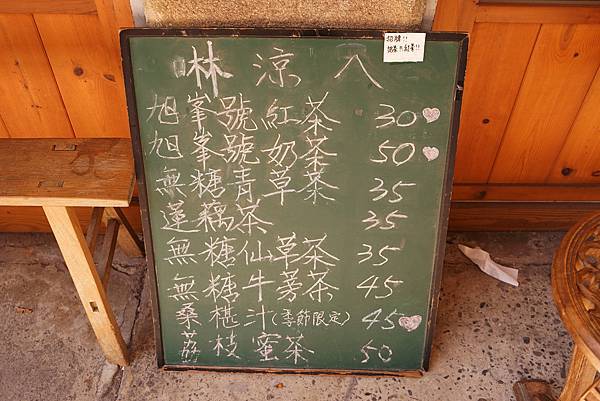 啉涼八
旭峯號紅茶 30
旭峯號奶茶 50
無糖青草茶 35
蓮藕茶 35
無糖仙草茶 35
無糖牛蒡茶 45
桑椹汁(季節限定) 45
荔枝蜜茶 50